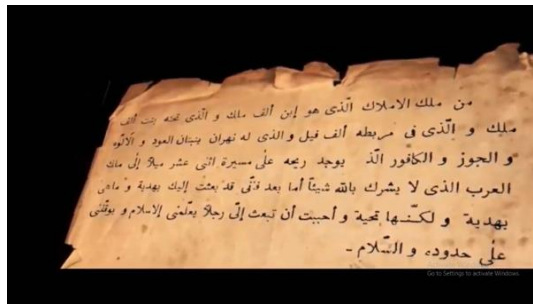 من ملك الاملاك الّذى هو إبن ألف ملك و الّذى تحته بنت ألف
ملك و الّذى فى مربطه ألف فيل و الذى له نهران ينبتان العود و الألوه
و الجوز و الكافور الّذ يوجد ريحه على مسيرة اثنى عشر ميلا إلى ملك
العرب الذى لا يشرك بالله شيئا أما بعد فنّى قد بعثت إليك بهدية و ماهى
بهدية و لكنّها تحية و أحببت أن تبعث إلىّ رجلا يعلّمنى الاسلام و يوقفنى
على حدوده و السّلام -
Go to Settings to activate Windows.